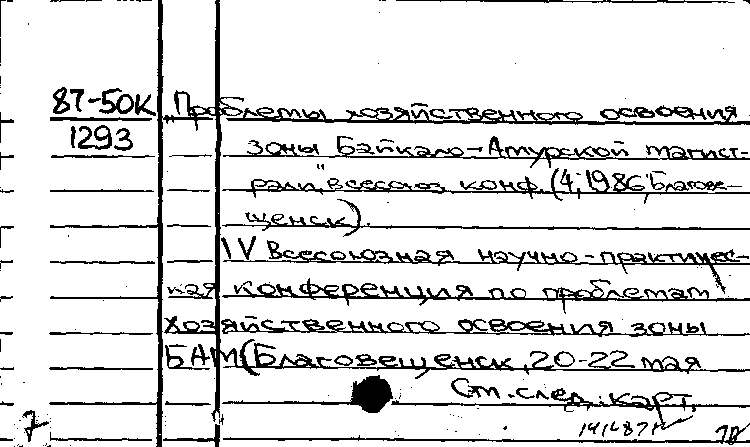 87-50К "Проблемы хозяйственного освоения
1293
зоны Байкало-Амурской магист-
рали", всесоюз. конф. (4; 1986; Благове-
щенск).
IV Всесоюзная научно-практичес-
кая конференция по проблемам
хозяйственного освоения зоны
БАМ (Благовещенск, 20-22 мая
См. след. карт.
7